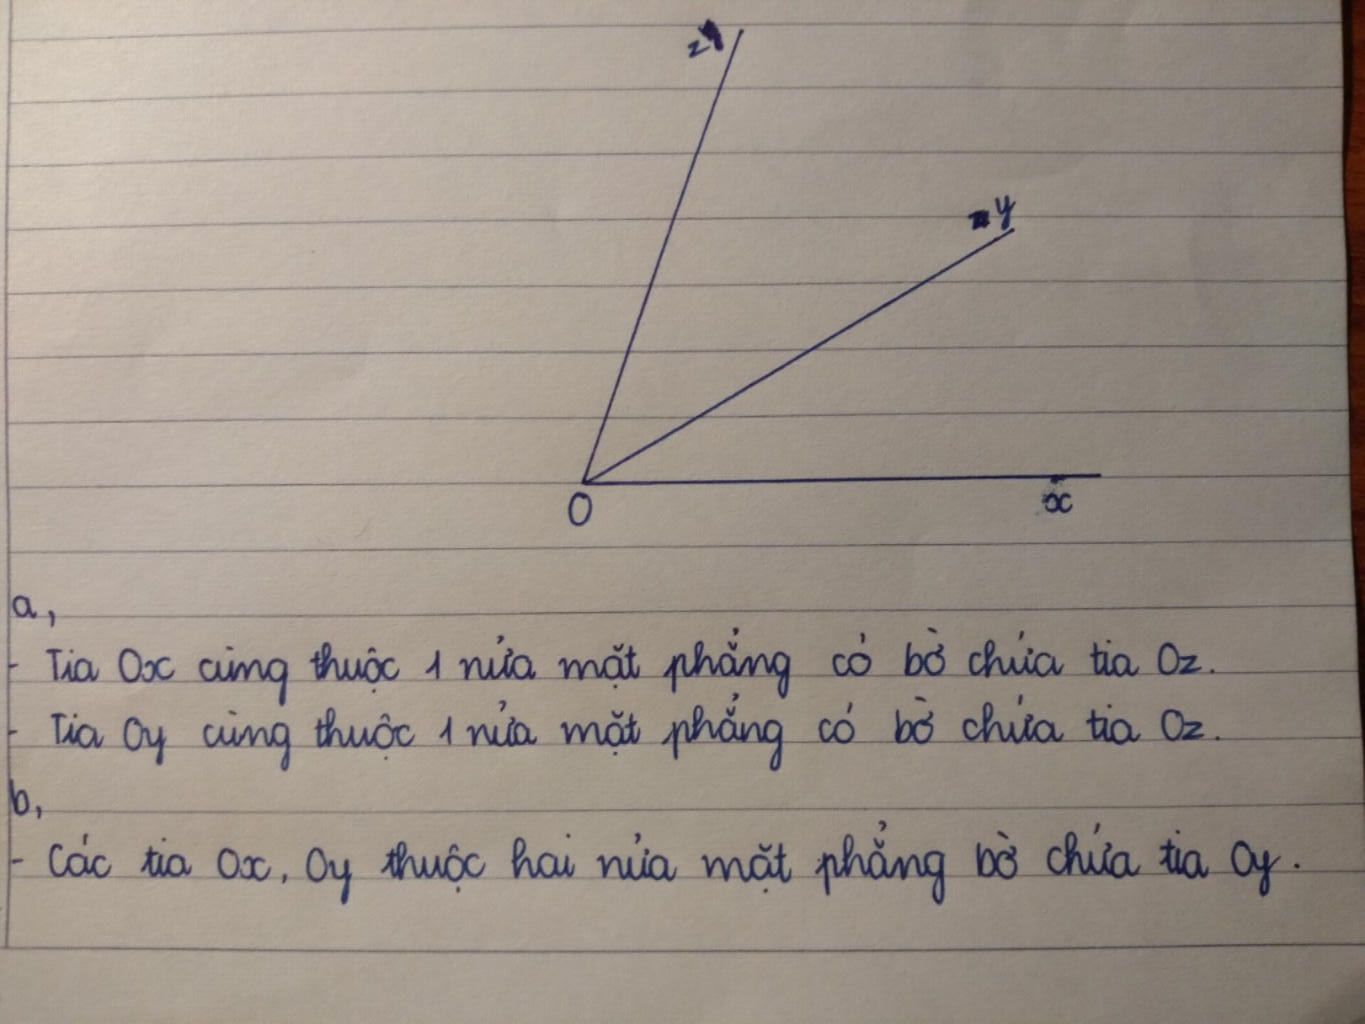 z
y
O
x
a,
- Tia Ox cùng thuộc 1 nửa mặt phẳng có bờ chứa tia Oz.
- Tia Oy cùng thuộc 1 nửa mặt phẳng có bờ chứa tia Oz.
b,
- Các tia Ox, Oy thuộc hai nửa mặt phẳng bờ chứa tia Oy.